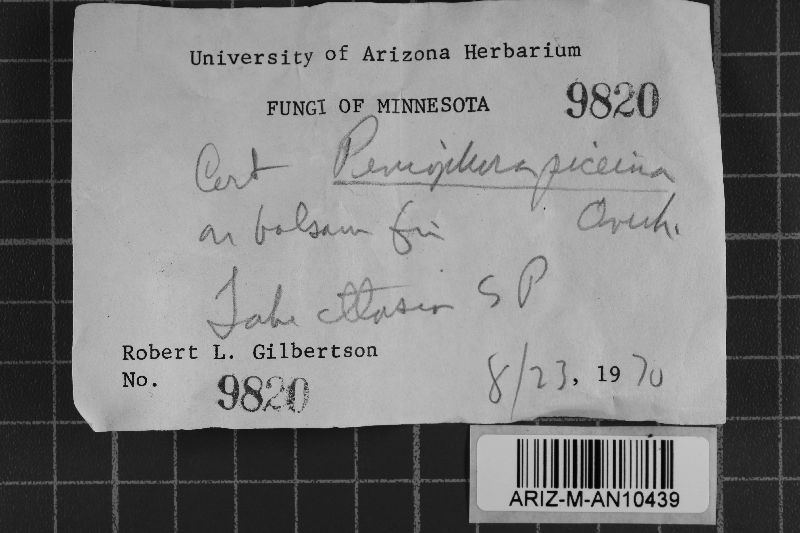 University of Arizona Herbarium
FUNGI OF MINNESOTA 9820
Cort Peniophora piceina
on balsam fir Overh.
Lake Itasca S P
Robert L. Gilbertson
No. 9820
8/23, 1970
ARIZ-M-AN10439